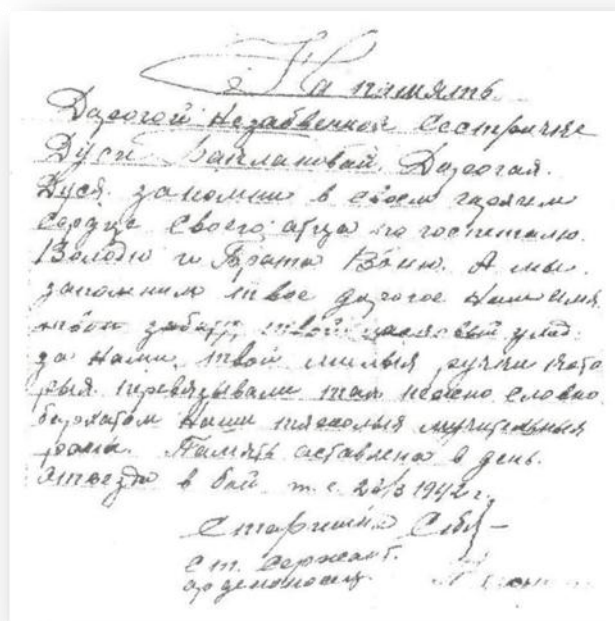 На память
Дорогой Незабвенной сестричке
Дуси Каплановай. Дарогая
Дуся запомни в своем горячем
Сердце своего отца по госпиталю
Володю и Брата Ваню. А мы
запомним твое дорогое Нам имя
твой ласковый уход
за Нами, твои милыя ручки кото
рыя перевязывали так нежно словно
бархатом Наши тяжолыя мучительныя
раны. Память аставлена в день
Отъезда в бой т.е. 1942 г.
Старшина
ст. сержант.
орденоносец